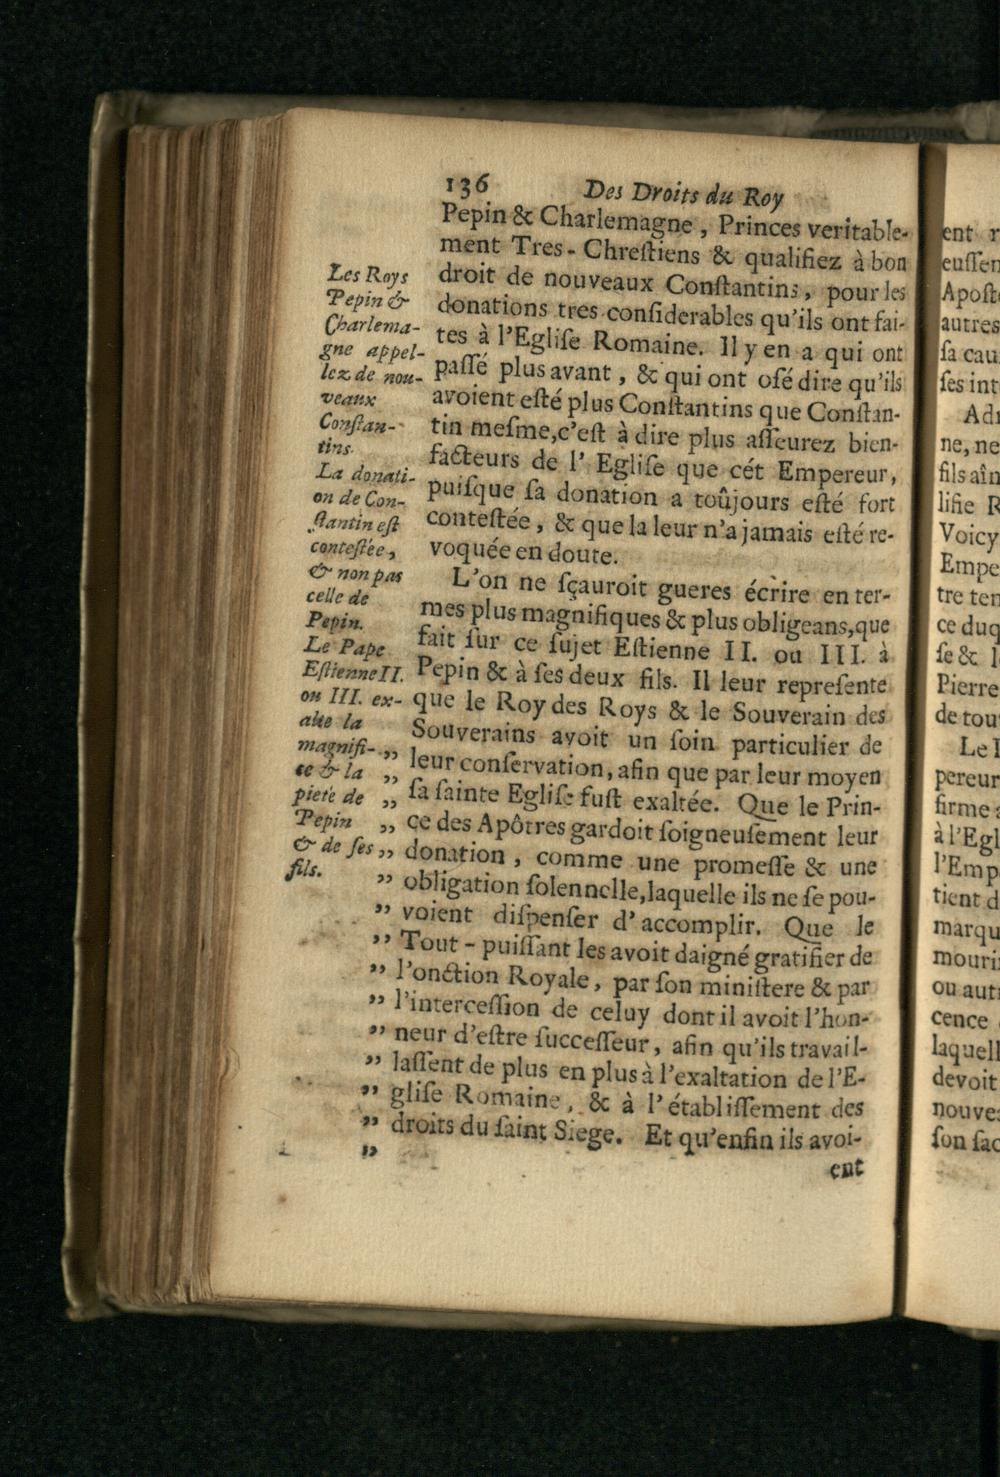 136 Des Droits du Roy
Pepin & Charlemagne, Princes veritable-
ment Tres-Chreſtiens & qualifiez à bon
droit de nouveaux Conſtantins, pour les
donations tres conſiderables qu'ils ont fai-
tes à l'Egliſe Romaine. Il y en a qui ont
paſſé plus avant, & qui ont oſé dire qu'ils
avoient eſté plus Conſtantins que Conſtan-
tin meſme, c'eſt à dire plus aſſeurez bien-
facteurs de l'Egliſe que cét Empereur,
puiſque ſa donation a toûjours eſté fort
conteſtée, & que la leur n'a jamais eſté re-
voquée en doute.
L'on ne ſçauroit gueres écrire en ter-
mes plus magnifiques & plus obligeans, que
fait ſur ce ſujet Eſtienne II. ou III. à
Pepin & à ſes deux fils. Il leur repreſente
que le Roy des Roys & le Souverain des
Souverains avoit un ſoin particulier de
„ leur conſervation, afin que par leur moyen
„ ſa ſainte Egliſe fuſt exaltée. Que le Prin-
„ ce des Apôtres gardoit ſoigneuſement leur
„ donation, comme une promeſſe & une
„ obligation ſolennelle, laquelle ils ne ſe pou-
„ voient diſpenſer d'accomplir. Que le
„ Tout-puiſſant les avoit daigné gratifier de
„ l'onction Royale, par ſon miniſtere & par
„ l'interceſſion de celuy dont il avoit l'hon-
„ neur d'eſtre ſucceſſeur, afin qu'ils travail-
„ laſſent de plus en plus à l'exaltation de l'E-
„ gliſe Romaine, & à l'établiſſement des
„ droits du ſaint Siege. Et qu'enfin ils avoi-
„
ent
Les Roys
Pepin &
Charlema-
gne appel-
lez de nou-
veaux
Conſtan-
tins.
La donati-
on de Con-
ſtantin eſt
conteſtée,
& non pas
celle de
Pepin.
Le Pape
Eſtienne II.
ou III. ex-
alte la
magnifi-
ce & la
pieté de
Pepin
& de ſes
fils.
ent
euſſen
Apoſt
autres
ſa cau
ſes int
Ad
ne, ne
fils aîn
lifie R
Voicy
Empe
tre ten
ce duq
ſe & l
Pierre
de tou
Le
pereur
firme
à l'Egl
l'Emp
tient d
marqu
mouri
ou aut
cence
laquell
devoit
nouve
ſon ſac